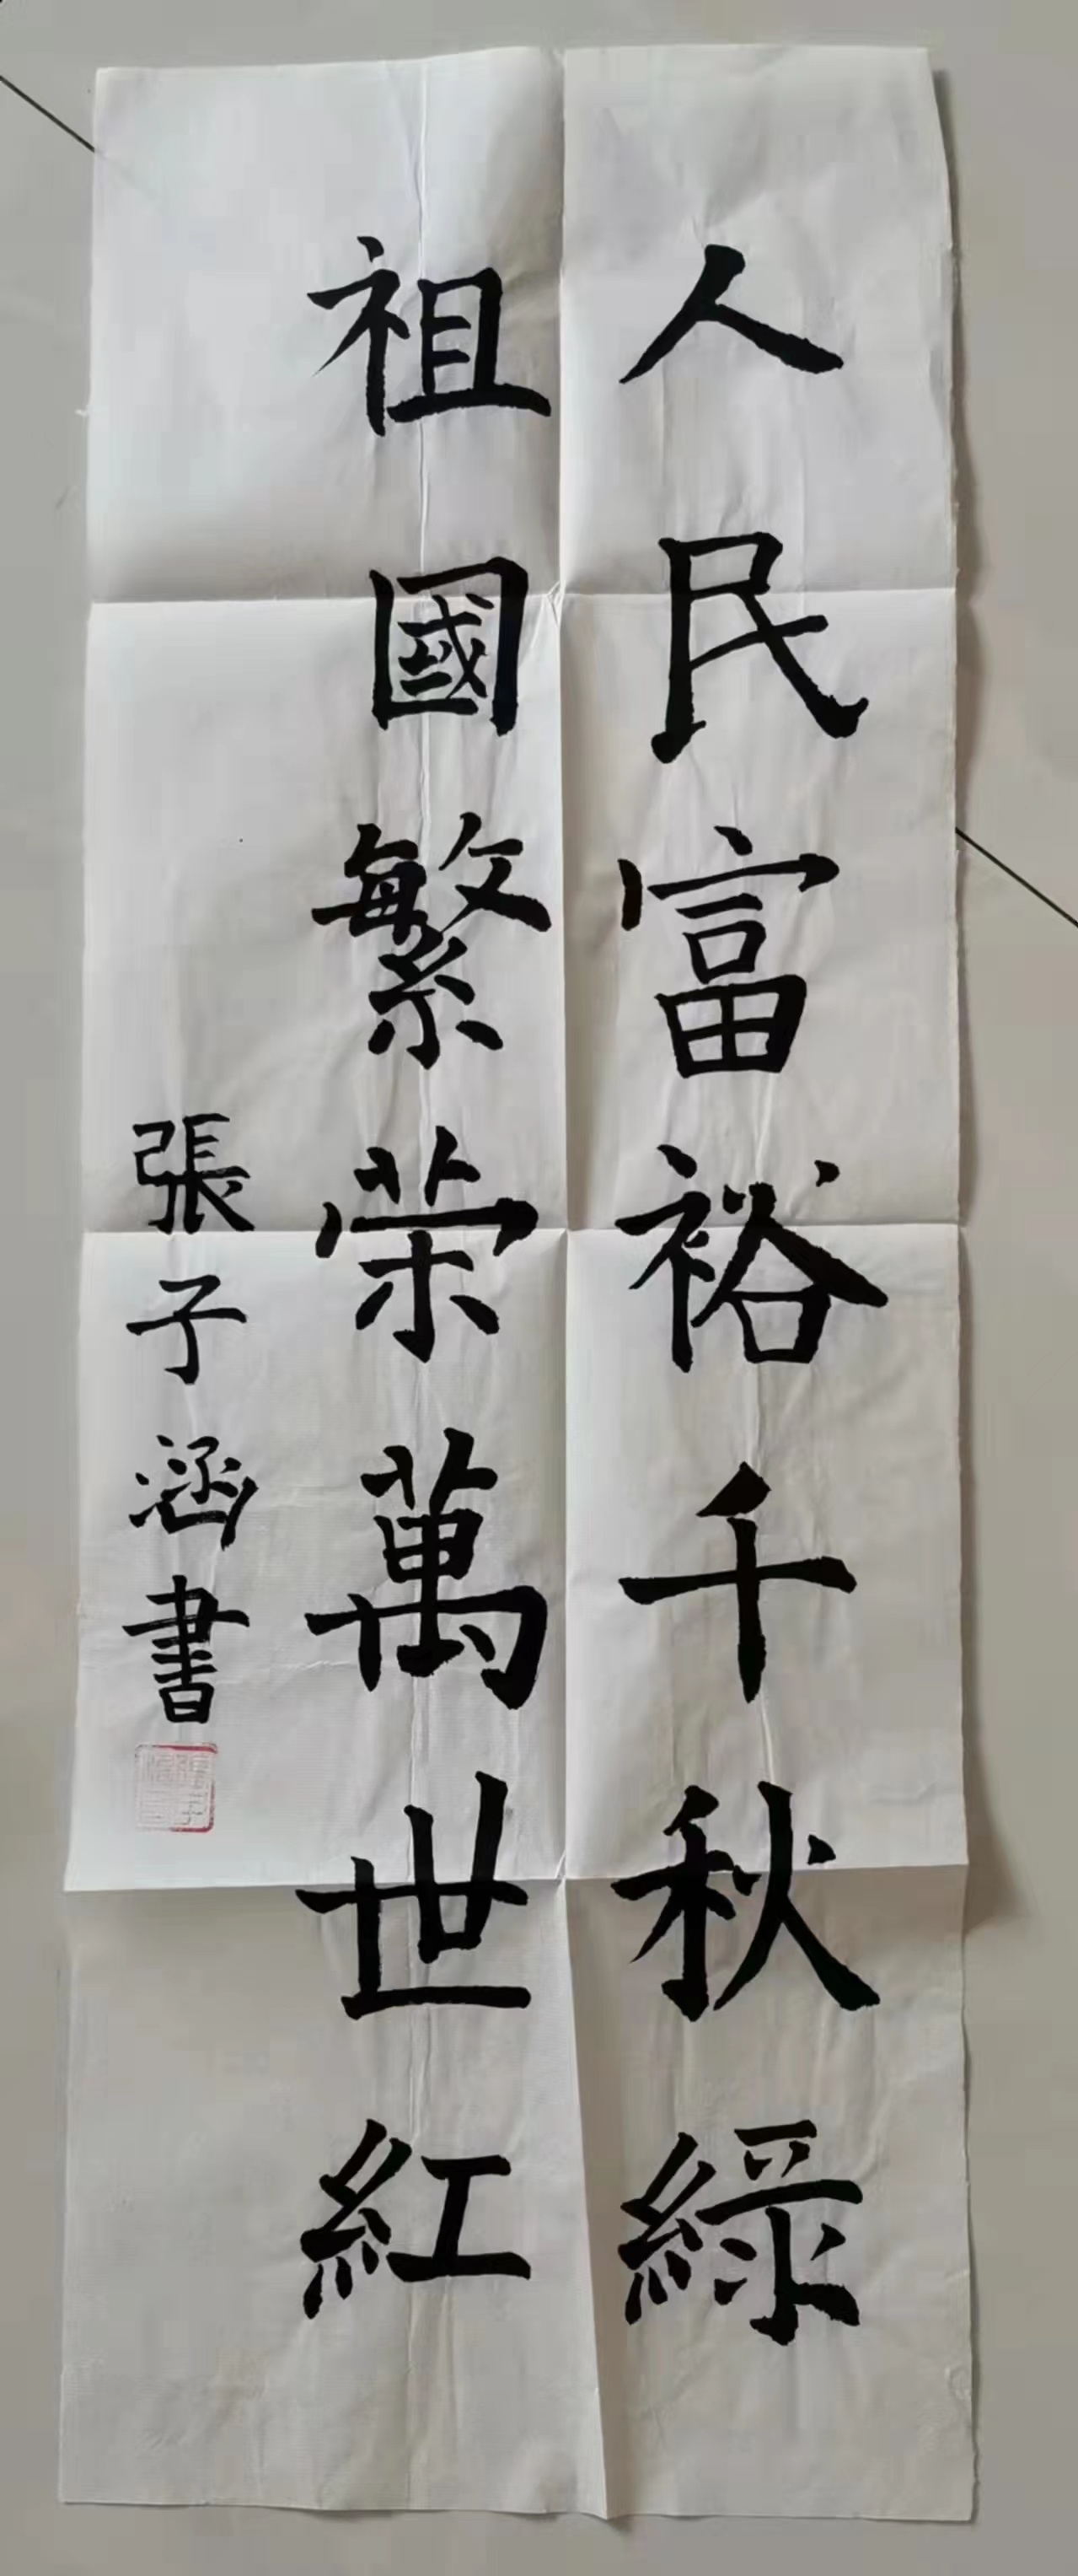 人民富裕千秋綠
祖國繁荣萬世紅
張子涵書